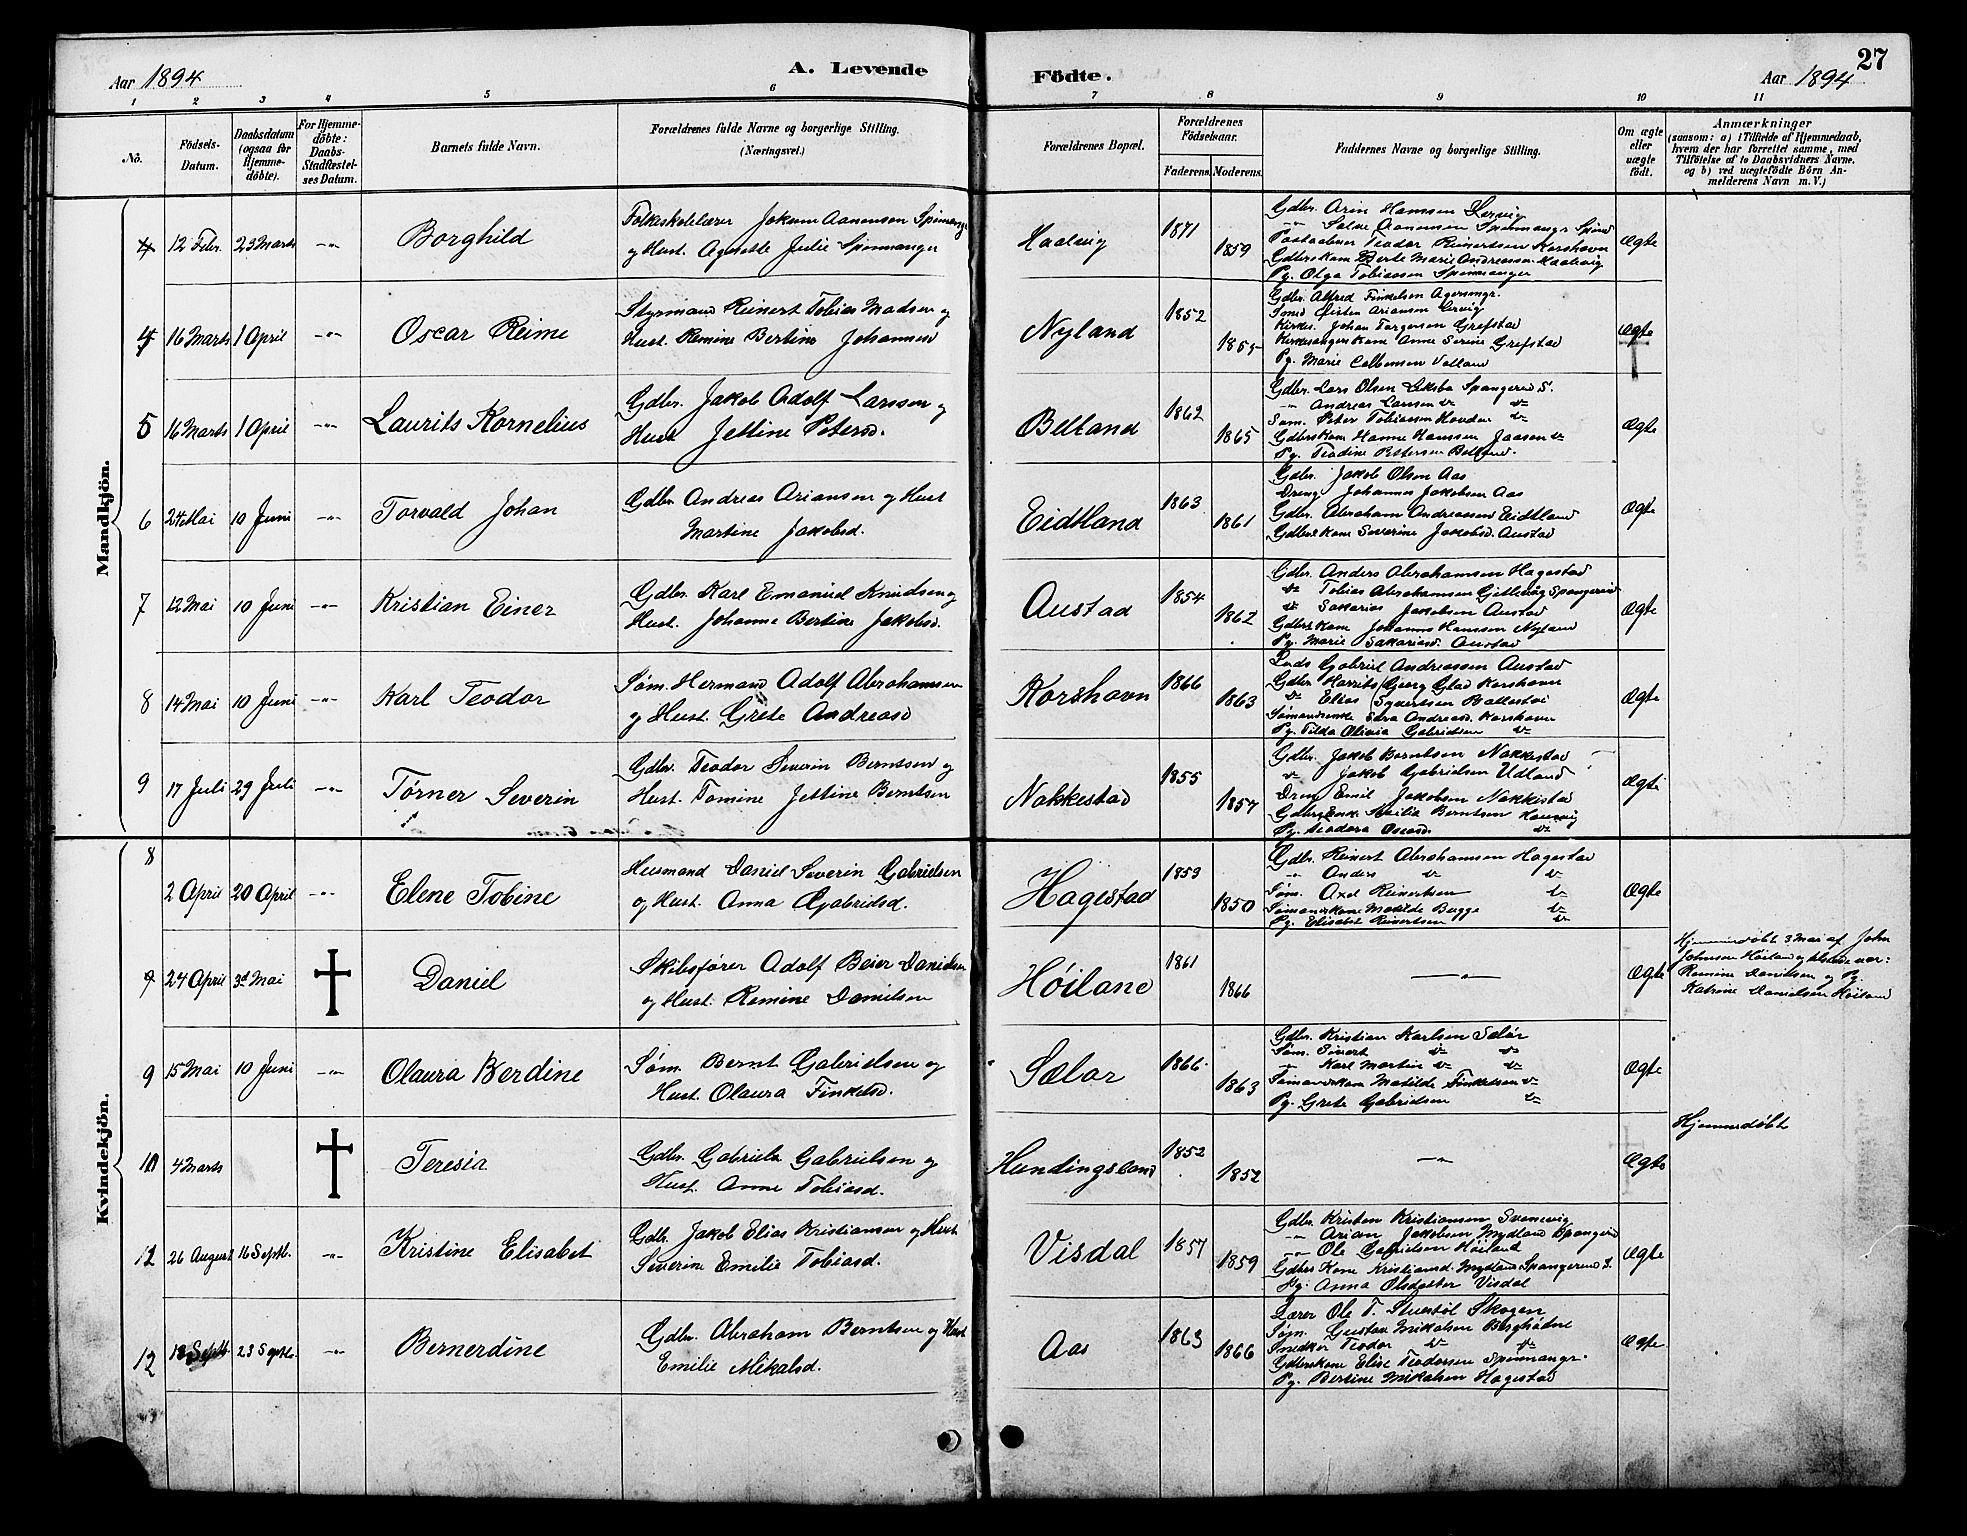 Aar 1894
A. Levende
Födte.
27
Aar 1894
1 2 3 4 5 6 7 8 9 10 11
No.
Födsels-Datum.
Daabsdatum (ogsaa for Hjemme-döbte).
For Hjemme-döbte: Daabs-Stadfæstel-ses Datum.
Barnets fulde Navn.
Forældrenes fulde Navne og borgerlige Stilling.
(Næringsvei.)
Forældrenes Bopæl.
Forældrenes Födselsaar.
Faderens. Moderens.
Faddernes Navne og borgerlige Stilling.
Om ægte eller uægte födt.
Anmærkninger
(saasom: a) i Tilfælde af Hjemmedaab,
hvem der har forrettet samme, med
Tilföielse af to Daabsvidners Navne,
og b) ved uægtefödte Börn An-
melderens Navn m. V.)
Mandkjön.
4 12 Febr. 23 Marts -"- Borghild
Folkeskolelærer Jokum Aanensen Spinnanger
og Hust. Agnethe Julie Spinnanger
Haalvig 1871 1859
Gdbr. Arin Hansen Lervig
Postaabner Teodor Reinertsen Korshavn
Gdbrskone Berte Marie Andreassen Haalvig
Pg. Olga Tobiassen Spinnanger
Ægte
4 16 Marts 1 April -"- Oscar Reime
Styrmand Reinert Tobias Madsen og
Hust. Remine Bertine Johannesd
Nyland 1852 1855
Gdbr. Alfred Finkelsen Agersmgr.
Kirkes. Johan Torgersen Grefstad
Kirkesangers Kone Anne Serine Grefstad
Pg. Marie Colbensen Valland
Ægte
5 16 Marts 1 April -"- Laurits Kornelius
Gdbr. Jakob Adolf Larssen og
Hust Jettine Petersd.
Belland 1862 1865
Gdbr. Lars Olsen Leksbo Spangereid S.
-"- Andreas Larssen do do
Søm. Peter Tobiassen Houdan do
Gdbrskone Hanne Hanssen Jaasen do
Pg. Teodine Pettersen Belland.
Ægte
6 24 Mai 10 Juni -"- Torvald Johan
Gdbr Andreas Ariansen og Hust
Martine Jakobsd.
Eidtland 1863 1861
Gdbr. Jakob Olsen Aas
Dreng Johannes Jakobsen Aas
Gdbr. Abraham Andreassen Eidtland
Gdbrskone Severine Jakobsd. Austad
Ægte
7 12 Mai 10 Juni -"- Kristian Einer
Gdbr. Karl Emanuel Knudsen og
Hust. Johanne Bertine Jakobsd.
Austad 1854 1862
Gdbr. Anders Abrahamsen Hagestad
do Tobias Abrahamsen Gitlevåg Spangereid
do Sakarias Jakobsen Austad
Gdbrskone Johanne Hanssen Nyland
Pg. Marie Sakariasd. Austad
Ægte
8 14 Mai 10 Juni -"- Karl Teodor
Søm. Hermand Adolf Abrahamsen
og Hust. Grete Andreasd
Korshavn 1866 1863
Lods Gabriel Andreassen Austad
Gdbr. Harrits Georg Glad Korshavn
do Elias Syvertsen Ballestøi
Sømandsenke Sara Andreasd. Korshavn
Pg. Tilda Olivia Gabrielsen do
Ægte
9 17 Juli 29 Juli -"- Tørner Severin
Gdbr. Teodor Severin Berntsen og
Hust. Tomine Jettine Berntsen
Nakkestad 1855 1857
Gdbr. Jakob Berntsen Nakkestad
do Jakob Gabrielsen Udland
Dreng Emil Jakobsen Nakkestad
Gdbrsenke Berntsen
Pg. Teodora Oseasd. do
Ægte
Kvindekjön.
8 2 April 20 April -"- Elene Tobine
Husmand Daniel Severin Gabrielsen
og Hust. Anna Gabrielsd.
Hagestad 1853 1850
Gdbr. Reinert Abrahamsen Hagestad
-"- Anders do do
Søm. Axel Reinertsen do
Sømandskone Matilde Bugge do
Pg. Elisabet Reinertsen do
Ægte
9 24 April 3d Mai † Daniel
Skibsfører Adolf Beier Danielsen
og Hust. Remine Danielsen
Høiland 1861 1866
-"-
Ægte
Hjemmedøbt 3 Mai af John
Johnsen Høiland
Remine Danielsen og Pg.
Katrine Danielsen Høiland
9 15 Mai 10 Juni -"- Olaura Berdine
Søm. Bernt Gabrielsen og
Hust. Olaura Finkelsd.
Sælør 1866 1863
Gdbr. Kristian Karlsen Sælør
Søm. Sivert do do
-"- Karl Martin do do
Sømandskone Matilde Finkelsen do
Pg. Grete Gabrielsen do
Ægte
10 4 Marts † Teresia
Gdbr. Gabriel Gabrielsen og
Hust. Anne Tobiasd.
Hundingsland 1852 1852
-"-
Ægte
Hjemmedøbt
12 26 August 16 Septb. -"- Kristine Elisabet
Gdb. Jakob Elias Kristiansen og Hust
Severine Emilie Tobiasd.
Visdal 1857 1859
Gdbr. Kristen Kristiansen Svenevig
-"- Arian Jakobsen Mydland Spangereid
-"- Ole Gabrielsen Høiland
Gdbrs Kone Kristiansd. Mydland Spangereid S.
Pg. Anna Olsdatter Visdal
Ægte
12 18 Septb. 23 Septb. -"- Bernerdine
Gdbr. Abraham Berntsen og Hust
Emilie Mikalsd.
Aas 1863 1866
Lærer Ole T. Stuestøl Skogen
Søm. Gustav Mikalsen
Snedker Teodor do do
Gdbrskone Elise Teodorsen Spinnangr.
Pg. Bertine Mikalsen Hagestad
Ægte